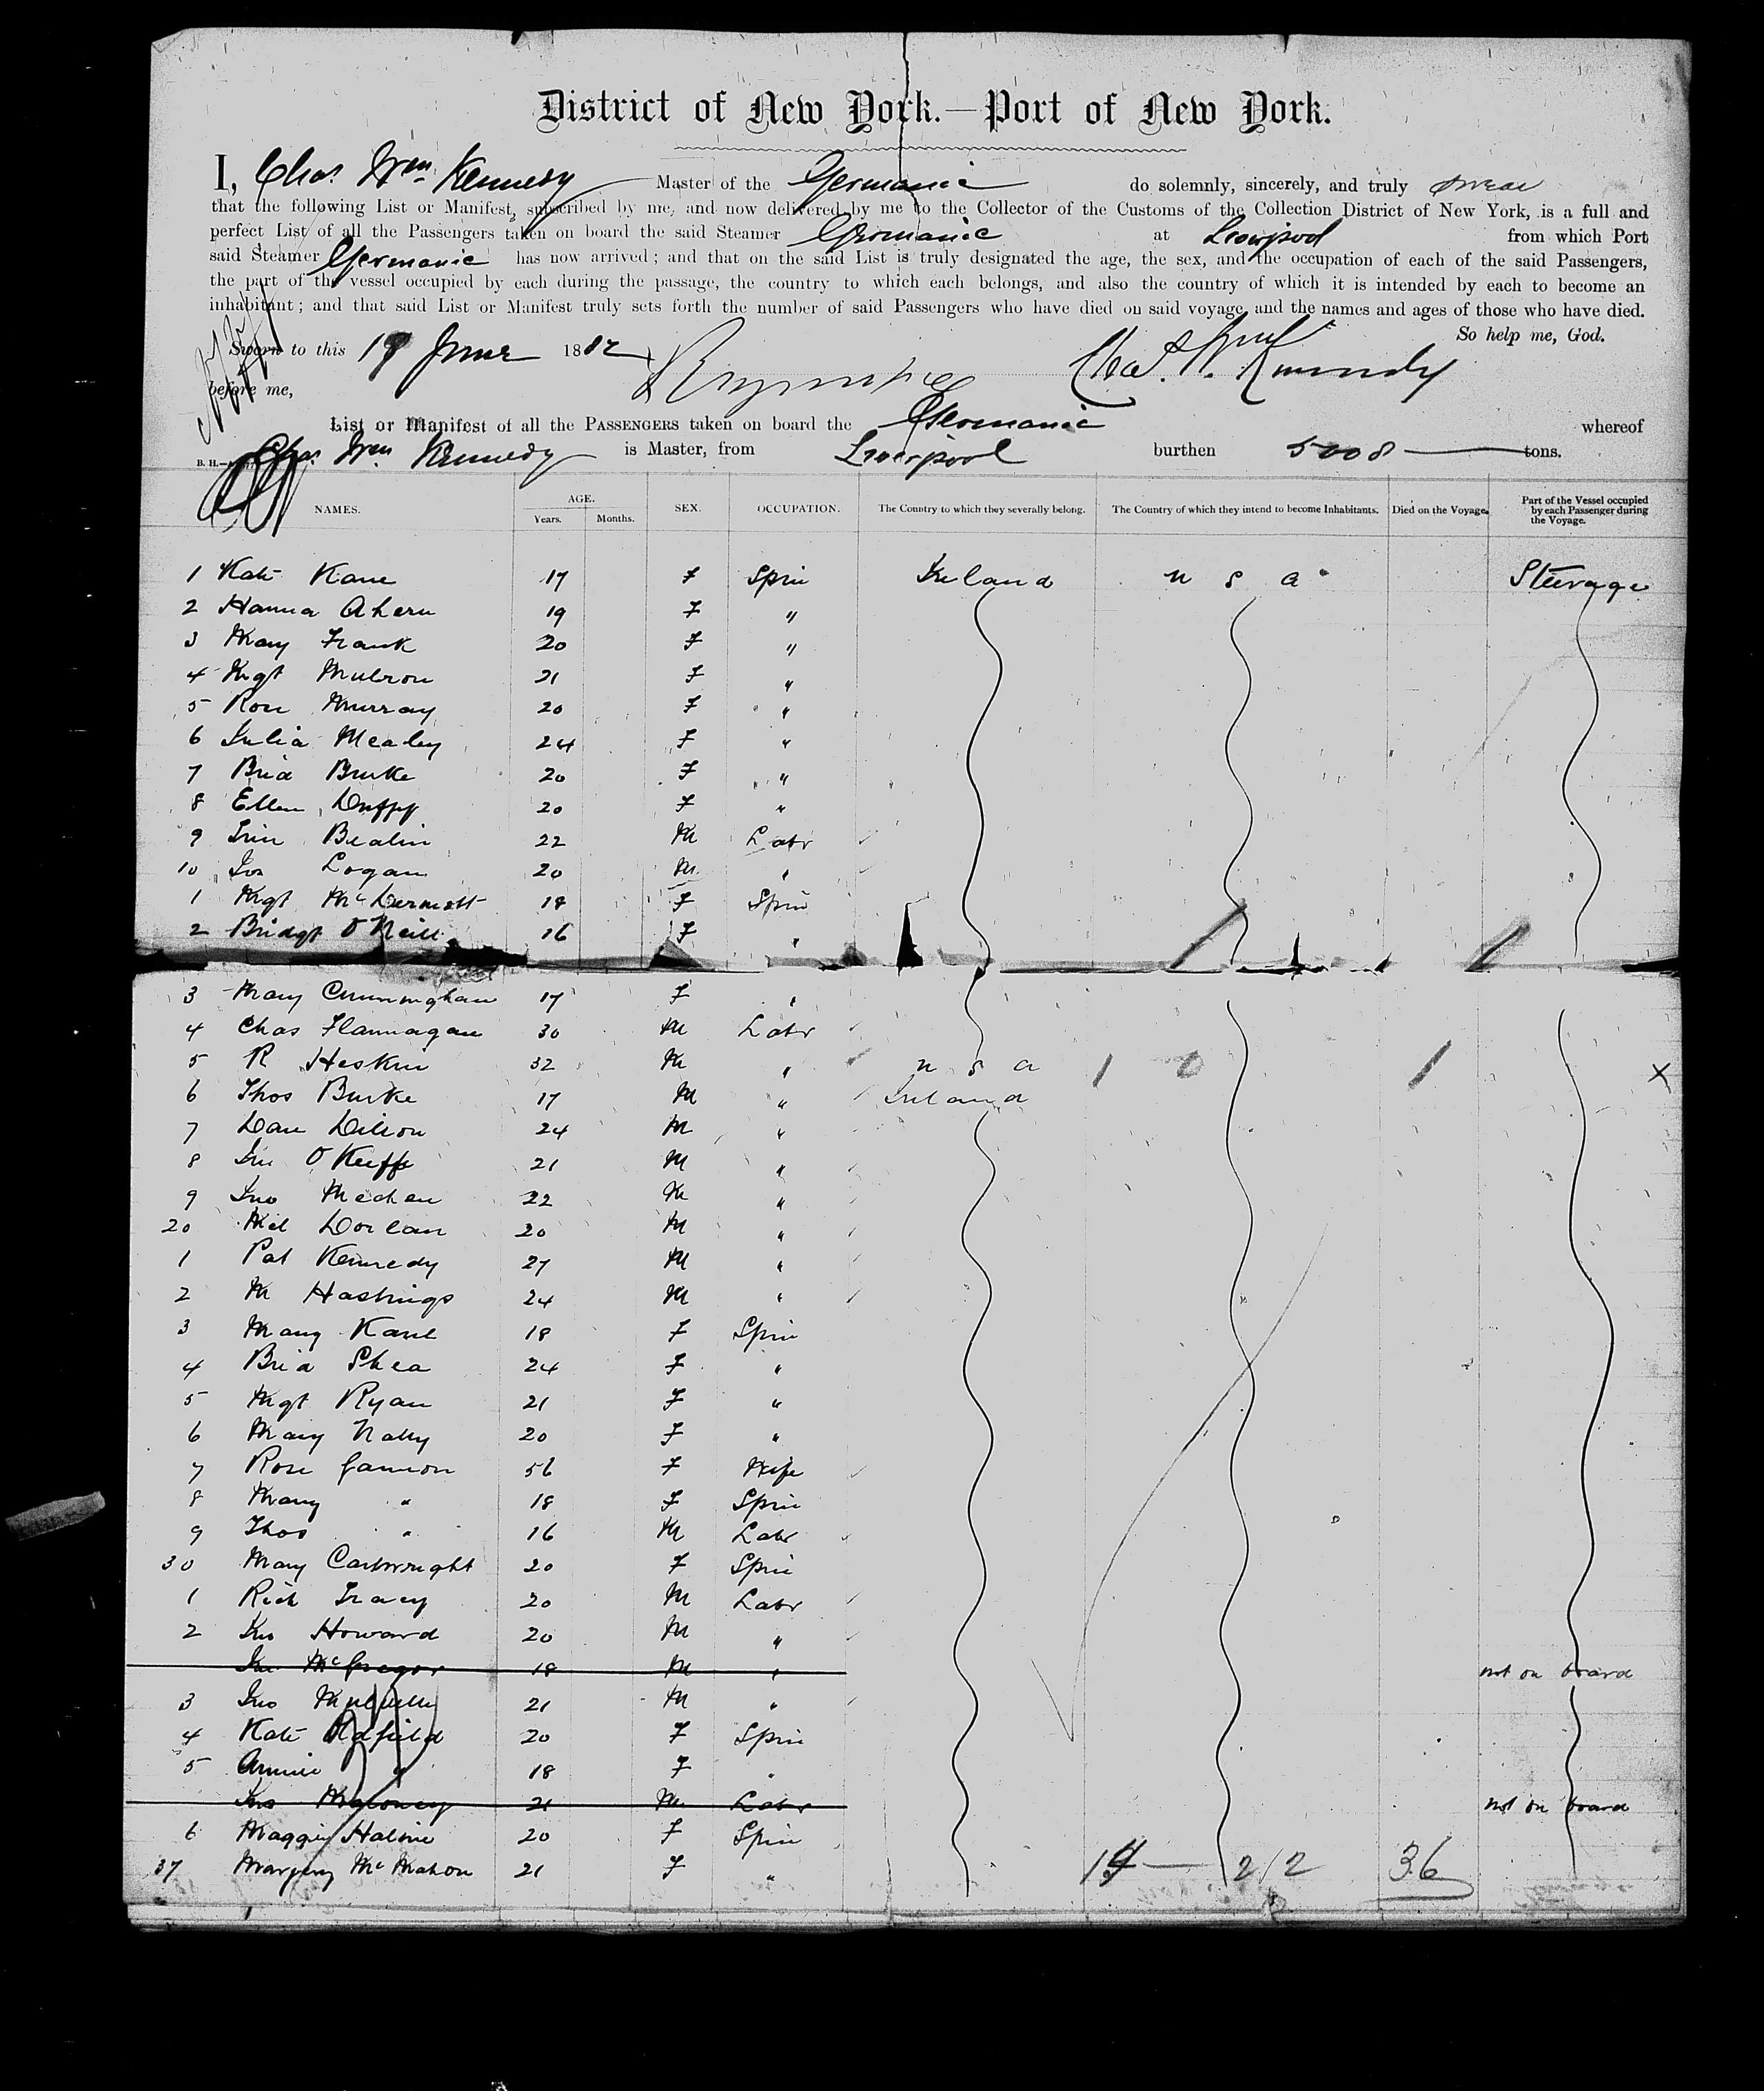 District of New York.—Port of New York.
I, Chas. Wm. Kennedy Master of the Germanic do solemnly, sincerely, and truly swear
that the following List or Manifest, subscribed by me, and now delivered by me to the Collector of the Customs of the Collection District of New York, is a full and
perfect List of all the Passengers taken on board the said Steamer Germanic at Liverpool from which Port
said Steamer Germanic has now arrived; and that on the said List is truly designated the age, the sex, and the occupation of each of the said Passengers,
the part of the vessel occupied by each during the passage, the country to which each belongs, and also the country of which it is intended by each to become an
inhabitant; and that said List or Manifest truly sets forth the number of said Passengers who have died on said voyage, and the names and ages of those who have died.
So help me, God.
Sworn to this 19 June 1882
before me,
List or Manifest of all the PASSENGERS taken on board the Germanic whereof
Chas. Wm. Kennedy is Master, from Liverpool burthen 5008 tons.
NAMES. AGE. Years. Months. SEX. OCCUPATION. The Country to which they severally belong. The Country of which they intend to become Inhabitants. Died on the Voyage. Part of the Vessel occupied by each Passenger during the Voyage.
1 Kate Kane 17 F Spin Ireland U S A Steerage
2 Hanna Ahern 19 F "
3 Mary Frank 20 F "
4 Mgt 21 F "
5 Rose Murray 20 F "
6 Julia Mealey 24 F "
7 Brid Burke 20 F "
8 Ellen Duffy 20 F "
9 22 M Labr
10 Jos Logan 20 M "
1 Mgt McDermott 18 F Spin
2 Bridgt O'Neill 16 F "
3 Mary Cunningham 17 F "
4 Chas Flannagan 30 M Labr
5 R Heskin 32 M " U S A
6 Thos Burke 17 M " Ireland
7 Dan Dillon 24 M "
8 O'Keeffe 21 M "
9 Jno 22 M "
20 20 M "
1 Pat Kennedy 27 M "
2 M Hastings 24 M "
3 Mary Kane 18 F Spin
4 Brid Shea 24 F "
5 Mgt Ryan 21 F "
6 Mary Nally 20 F "
7 Rose Gannon 56 F Wife
8 Mary " 18 F Spin
9 Thos " 16 M Labr
30 Mary Cartwright 20 F Spin
1 Rich Tracy 20 M Labr
2 Jno Howard 20 M "
Jno McGregor 18 M " not on board
3 Jno 21 M "
4 Kate Oldfield 20 F Spin
5 Annie " 18 F "
Jno Maloney 21 M Labr not on board
6 Maggie 20 F Spin
37 Margery McMahon 21 F "
212 36